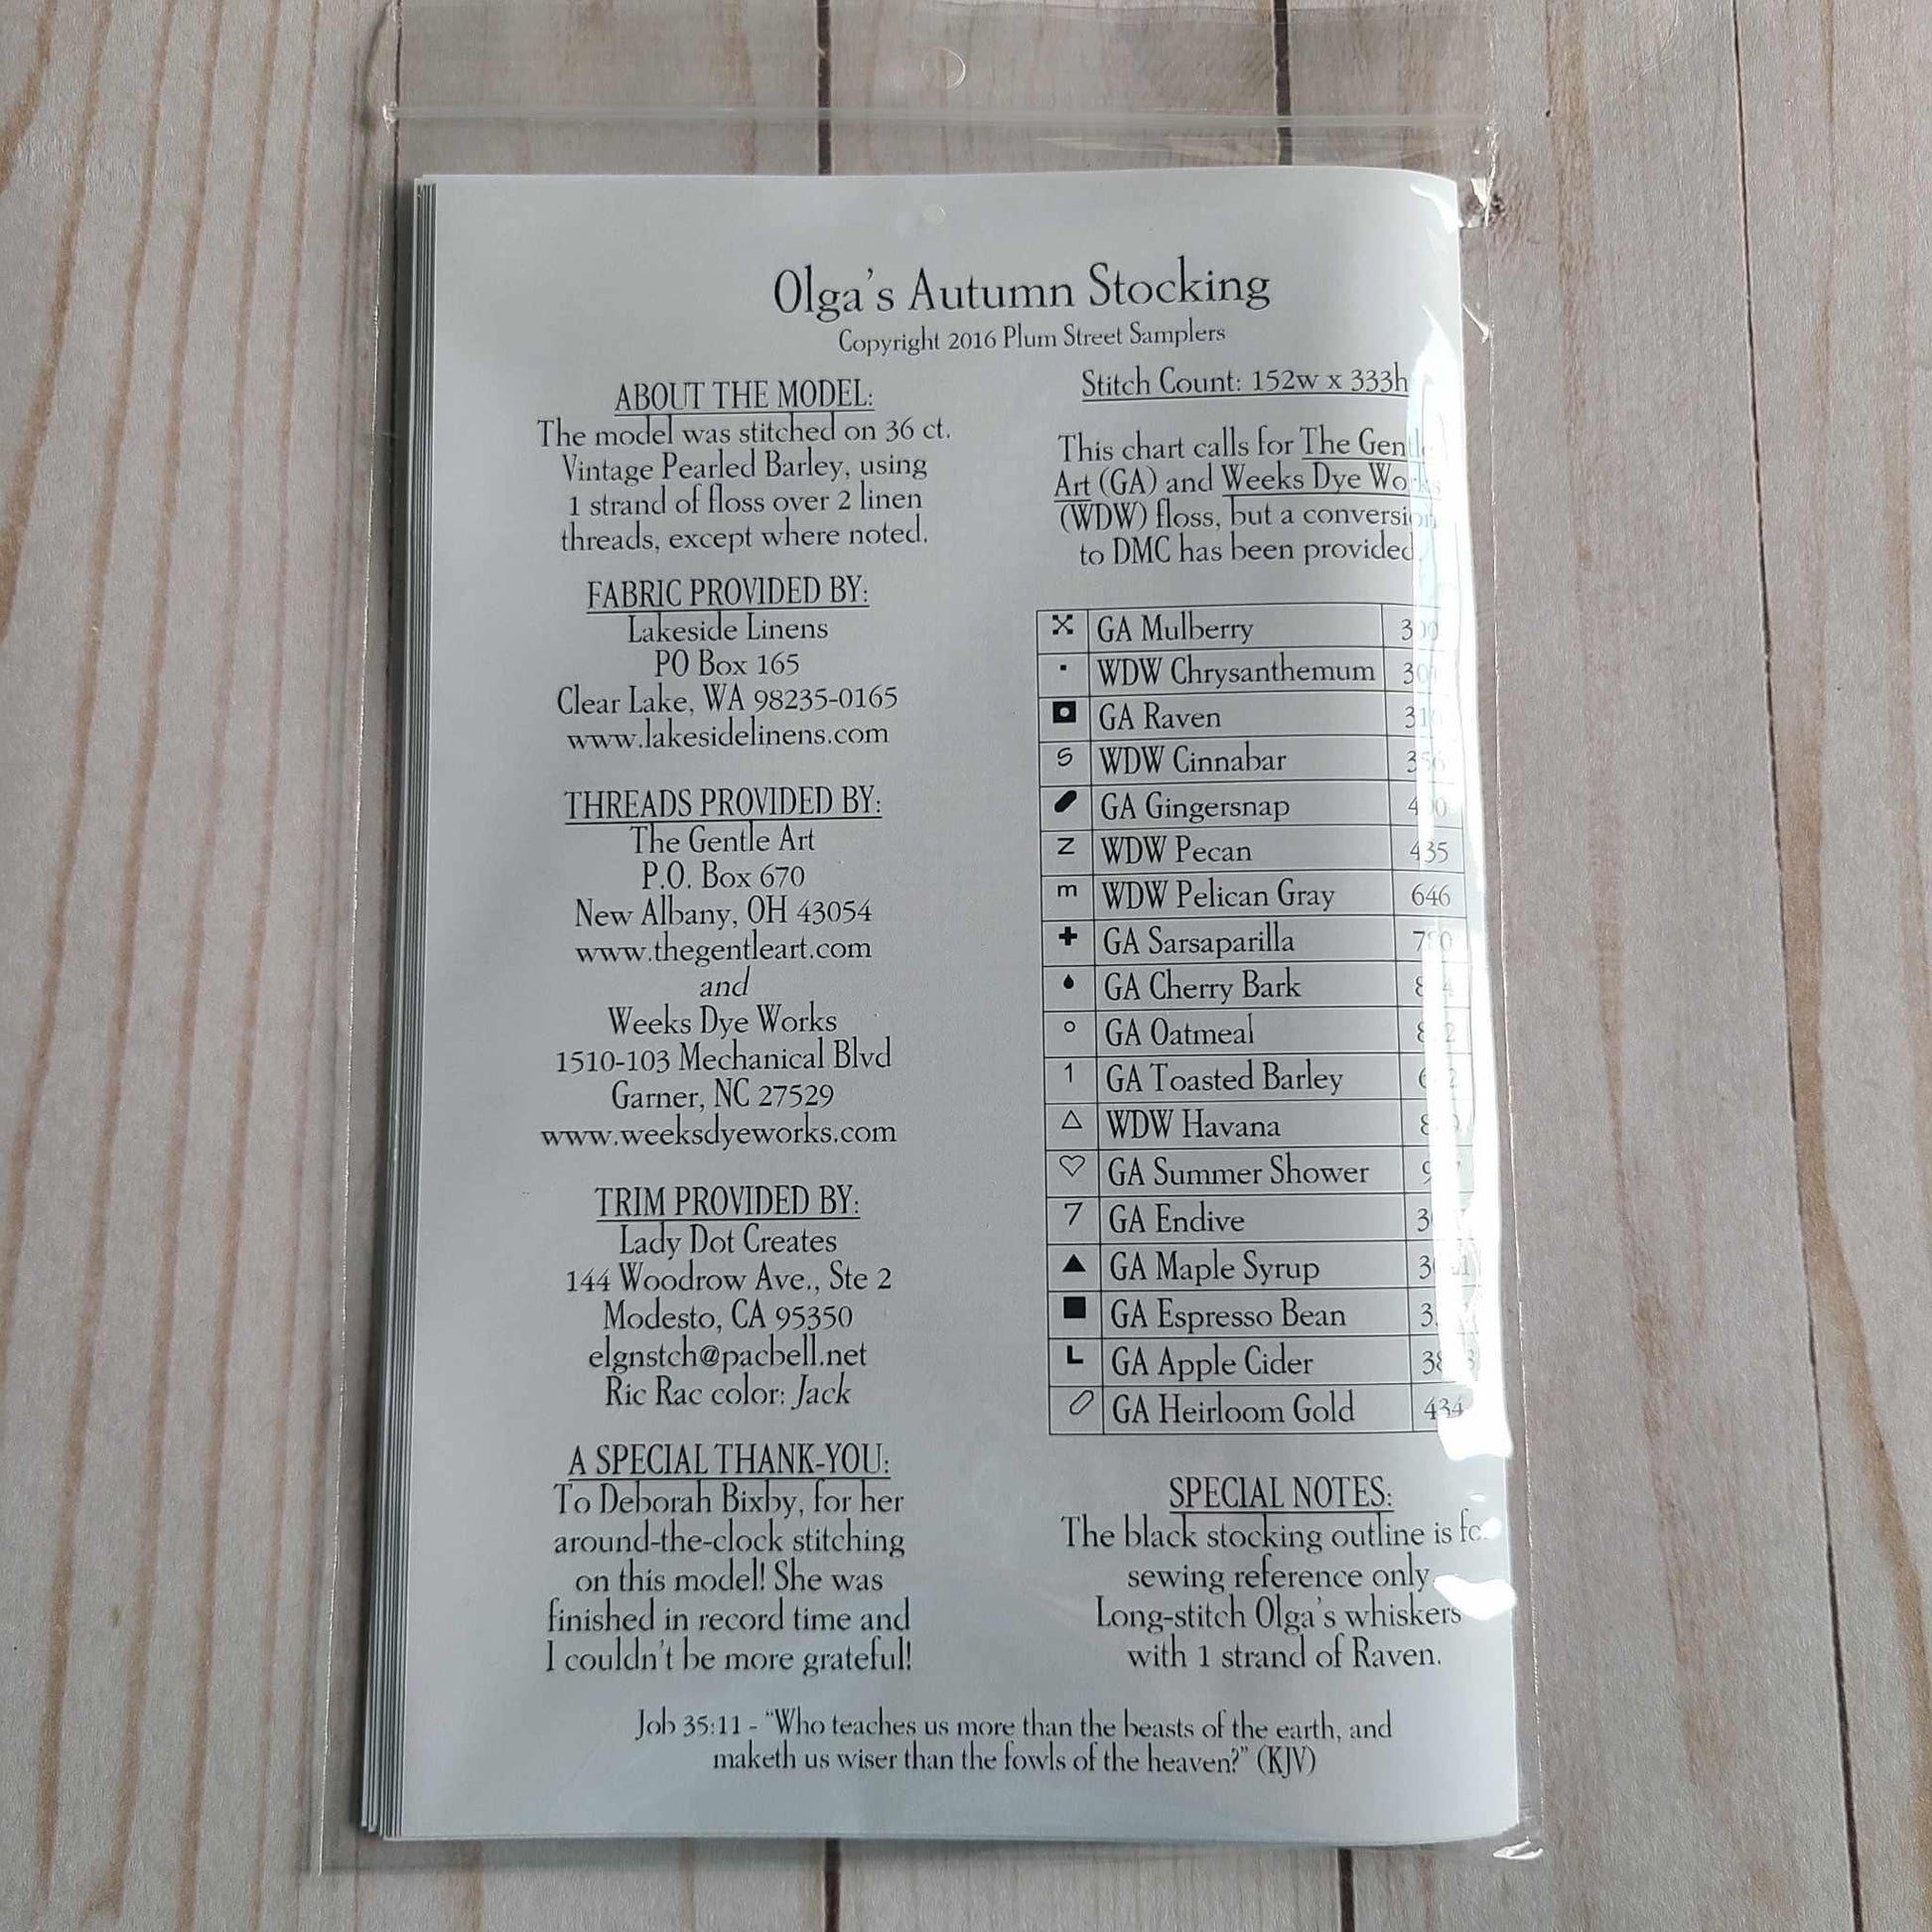 Olga's Autumn Stocking
Copyright 2016 Plum Street Samplers
ABOUT THE MODEL:
The model was stitched on 36 ct.
Vintage Pearled Barley, using
1 strand of floss over 2 linen
threads, except where noted.
FABRIC PROVIDED BY:
Lakeside Linens
PO Box 165
Clear Lake, WA 98235-0165
www.lakesidelinens.com
THREADS PROVIDED BY:
The Gentle Art
P.O. Box 670
New Albany, OH 43054
www.thegentleart.com
and
Weeks Dye Works
1510-103 Mechanical Blvd
Garner, NC 27529
www.weeksdyeworks.com
TRIM PROVIDED BY:
Lady Dot Creates
144 Woodrow Ave., Ste 2
Modesto, CA 95350
elgnstch@pacbell.net
Ric Rac color: Jack
A SPECIAL THANK-YOU:
To Deborah Bixby, for her
around-the-clock stitching
on this model! She was
finished in record time and
I couldn't be more grateful!
Stitch Count: 152w x 333h
This chart calls for The Gentle
Art (GA) and Weeks Dye Works
(WDW) floss, but a conversion
to DMC has been provided.
GA Mulberry
WDW Chrysanthemum
GA Raven
S WDW Cinnabar
GA Gingersnap
Z WDW Pecan 435
m WDW Pelican Gray 646
+ GA Sarsaparilla
GA Cherry Bark
GA Oatmeal
1 GA Toasted Barley
WDW Havana
GA Summer Shower
7 GA Endive
GA Maple Syrup
GA Espresso Bean
L GA Apple Cider
GA Heirloom Gold 434
SPECIAL NOTES:
The black stocking outline is for
sewing reference only.
Long-stitch Olga's whiskers
with 1 strand of Raven.
Job 35:11 - "Who teaches us more than the beasts of the earth, and
maketh us wiser than the fowls of the heaven?" (KJV)